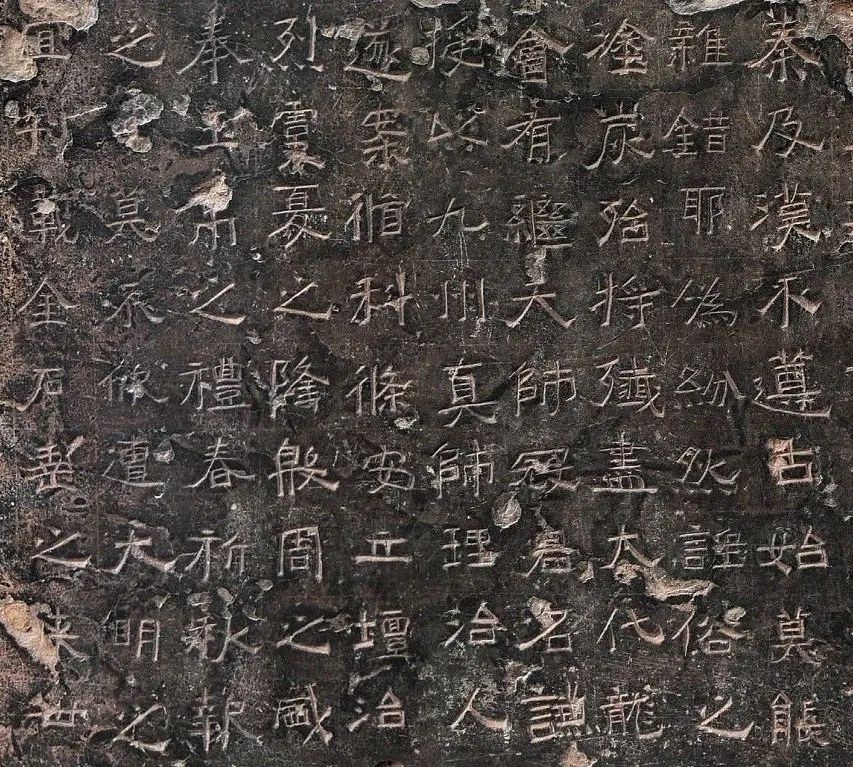 秦及漢不遵古始莫能
雜錯耶偽紛然誰俗之
塗炭殆將殲盡大代龍
會有繼天師寇君名謙
授以九州真師理治人
遂案循科條安立壇治
烈夏之隆殷周之盛
奉上帝之禮春祈秋報
之莫遭大明之
宜刊載金石垂之來世